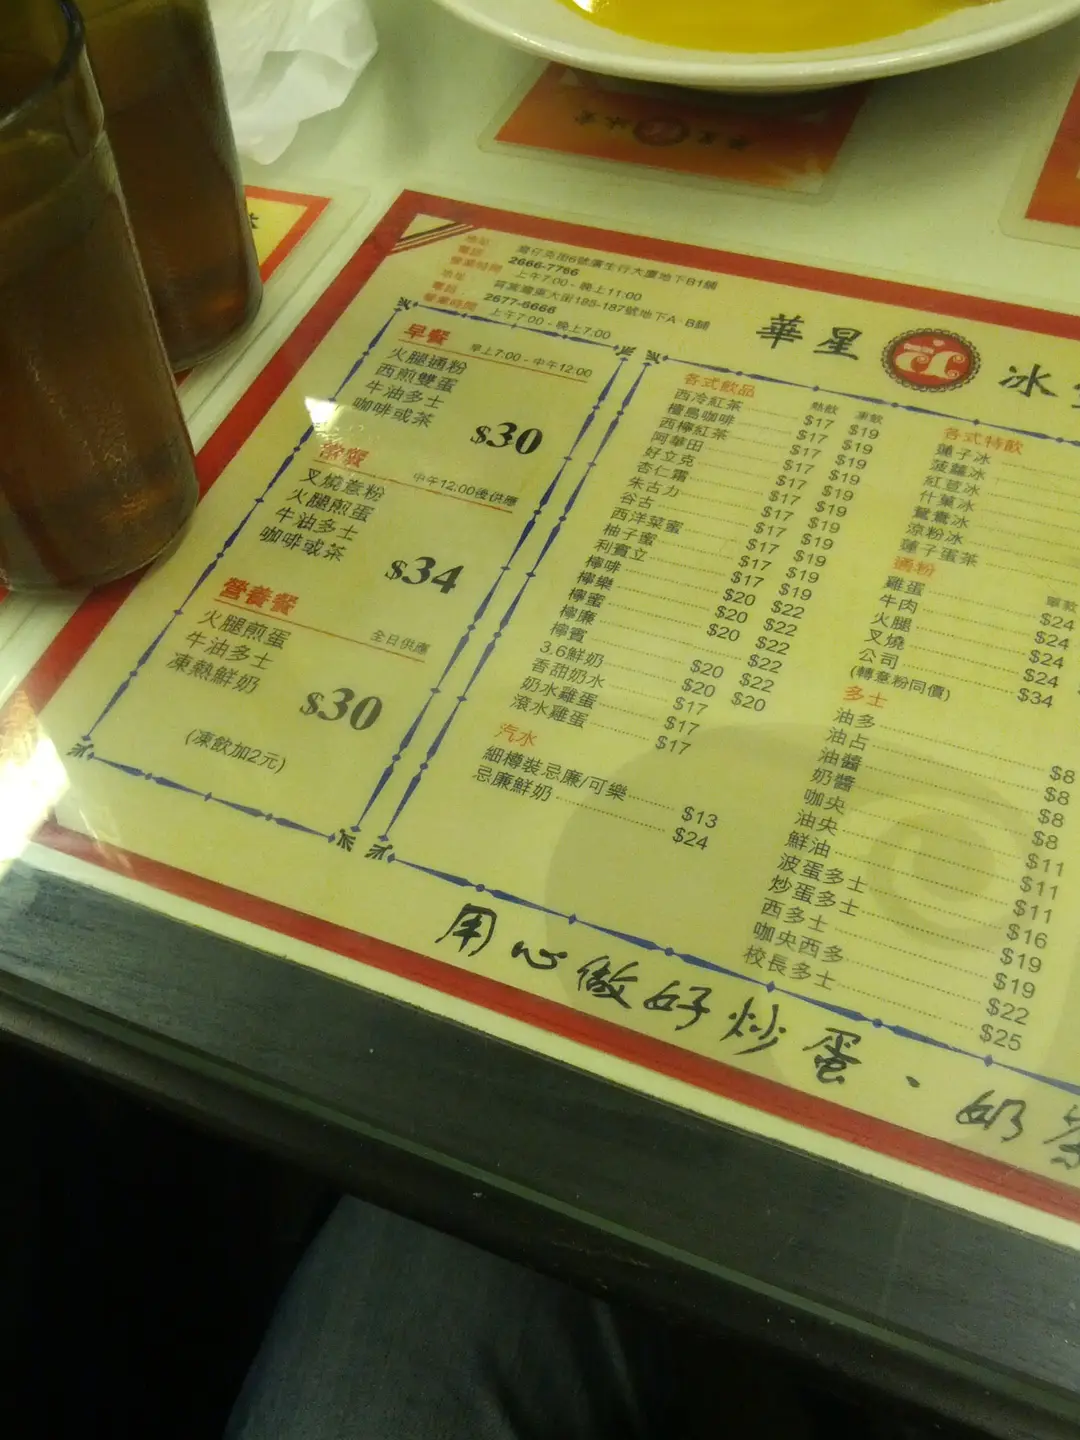 華星冰室
地址 灣仔克街6號廣生行大廈地下B1舖
電話 2666-7766
營業時間 上午7:00 - 晚上11:00
地址 筲箕灣東大街185-187號地下A-B舖
電話 2677-6666
營業時間 上午7:00 - 晚上7:00
華星 冰
早餐 早上7:00 - 中午12:00
火腿通粉
西煎雙蛋
牛油多士
咖啡或茶
$30
常餐 中午12:00後供應
叉燒意粉
火腿煎蛋
牛油多士
咖啡或茶
$34
營養餐 全日供應
火腿煎蛋
牛油多士
凍熱鮮奶
$30
(凍飲加2元)
各式飲品 熱飲 凍飲
西冷紅茶 $17 $19
檀島咖啡 $17 $19
西檸紅茶 $17 $19
阿華田 $17 $19
好立克 $17 $19
杏仁霜 $17 $19
朱古力 $17 $19
谷古 $17 $19
西洋菜蜜 $17 $19
柚子蜜 $17 $19
利賓立 $17 $19
檸啡 $20 $22
檸樂 $20 $22
檸蜜 $20 $22
檸廉 $22
檸賓 $20 $22
3.6鮮奶 $20 $20
香甜奶水 $17
奶水雞蛋 $17
滾水雞蛋 $17
汽水
細樽裝忌廉/可樂 $13
忌廉鮮奶 $24
各式特飲
蓮子冰
菠蘿冰
紅荳冰
什菓冰
鴛鴦冰
涼粉冰
蓮子蛋茶
通粉
雞蛋 $24
牛肉 $24
火腿 $24
叉燒 $24
公司 $34
(轉意粉同價)
多士
油多 $8
油占 $8
油醬 $8
奶醬 $8
咖央 $11
油央 $11
鮮油 $11
波蛋多士 $16
炒蛋多士 $19
西多士 $19
咖央西多 $22
校長多士 $25
用心做好炒蛋、奶茶